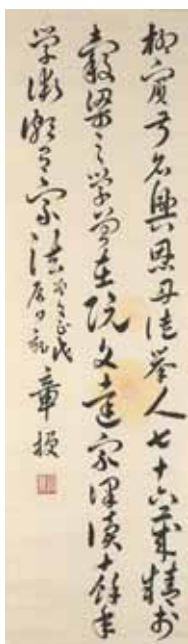 柳賓叔名興恩丹徒舉人七十六歲精於
穀梁之學曾在阮文達家課讀十餘年
学術淵有家法
章梫